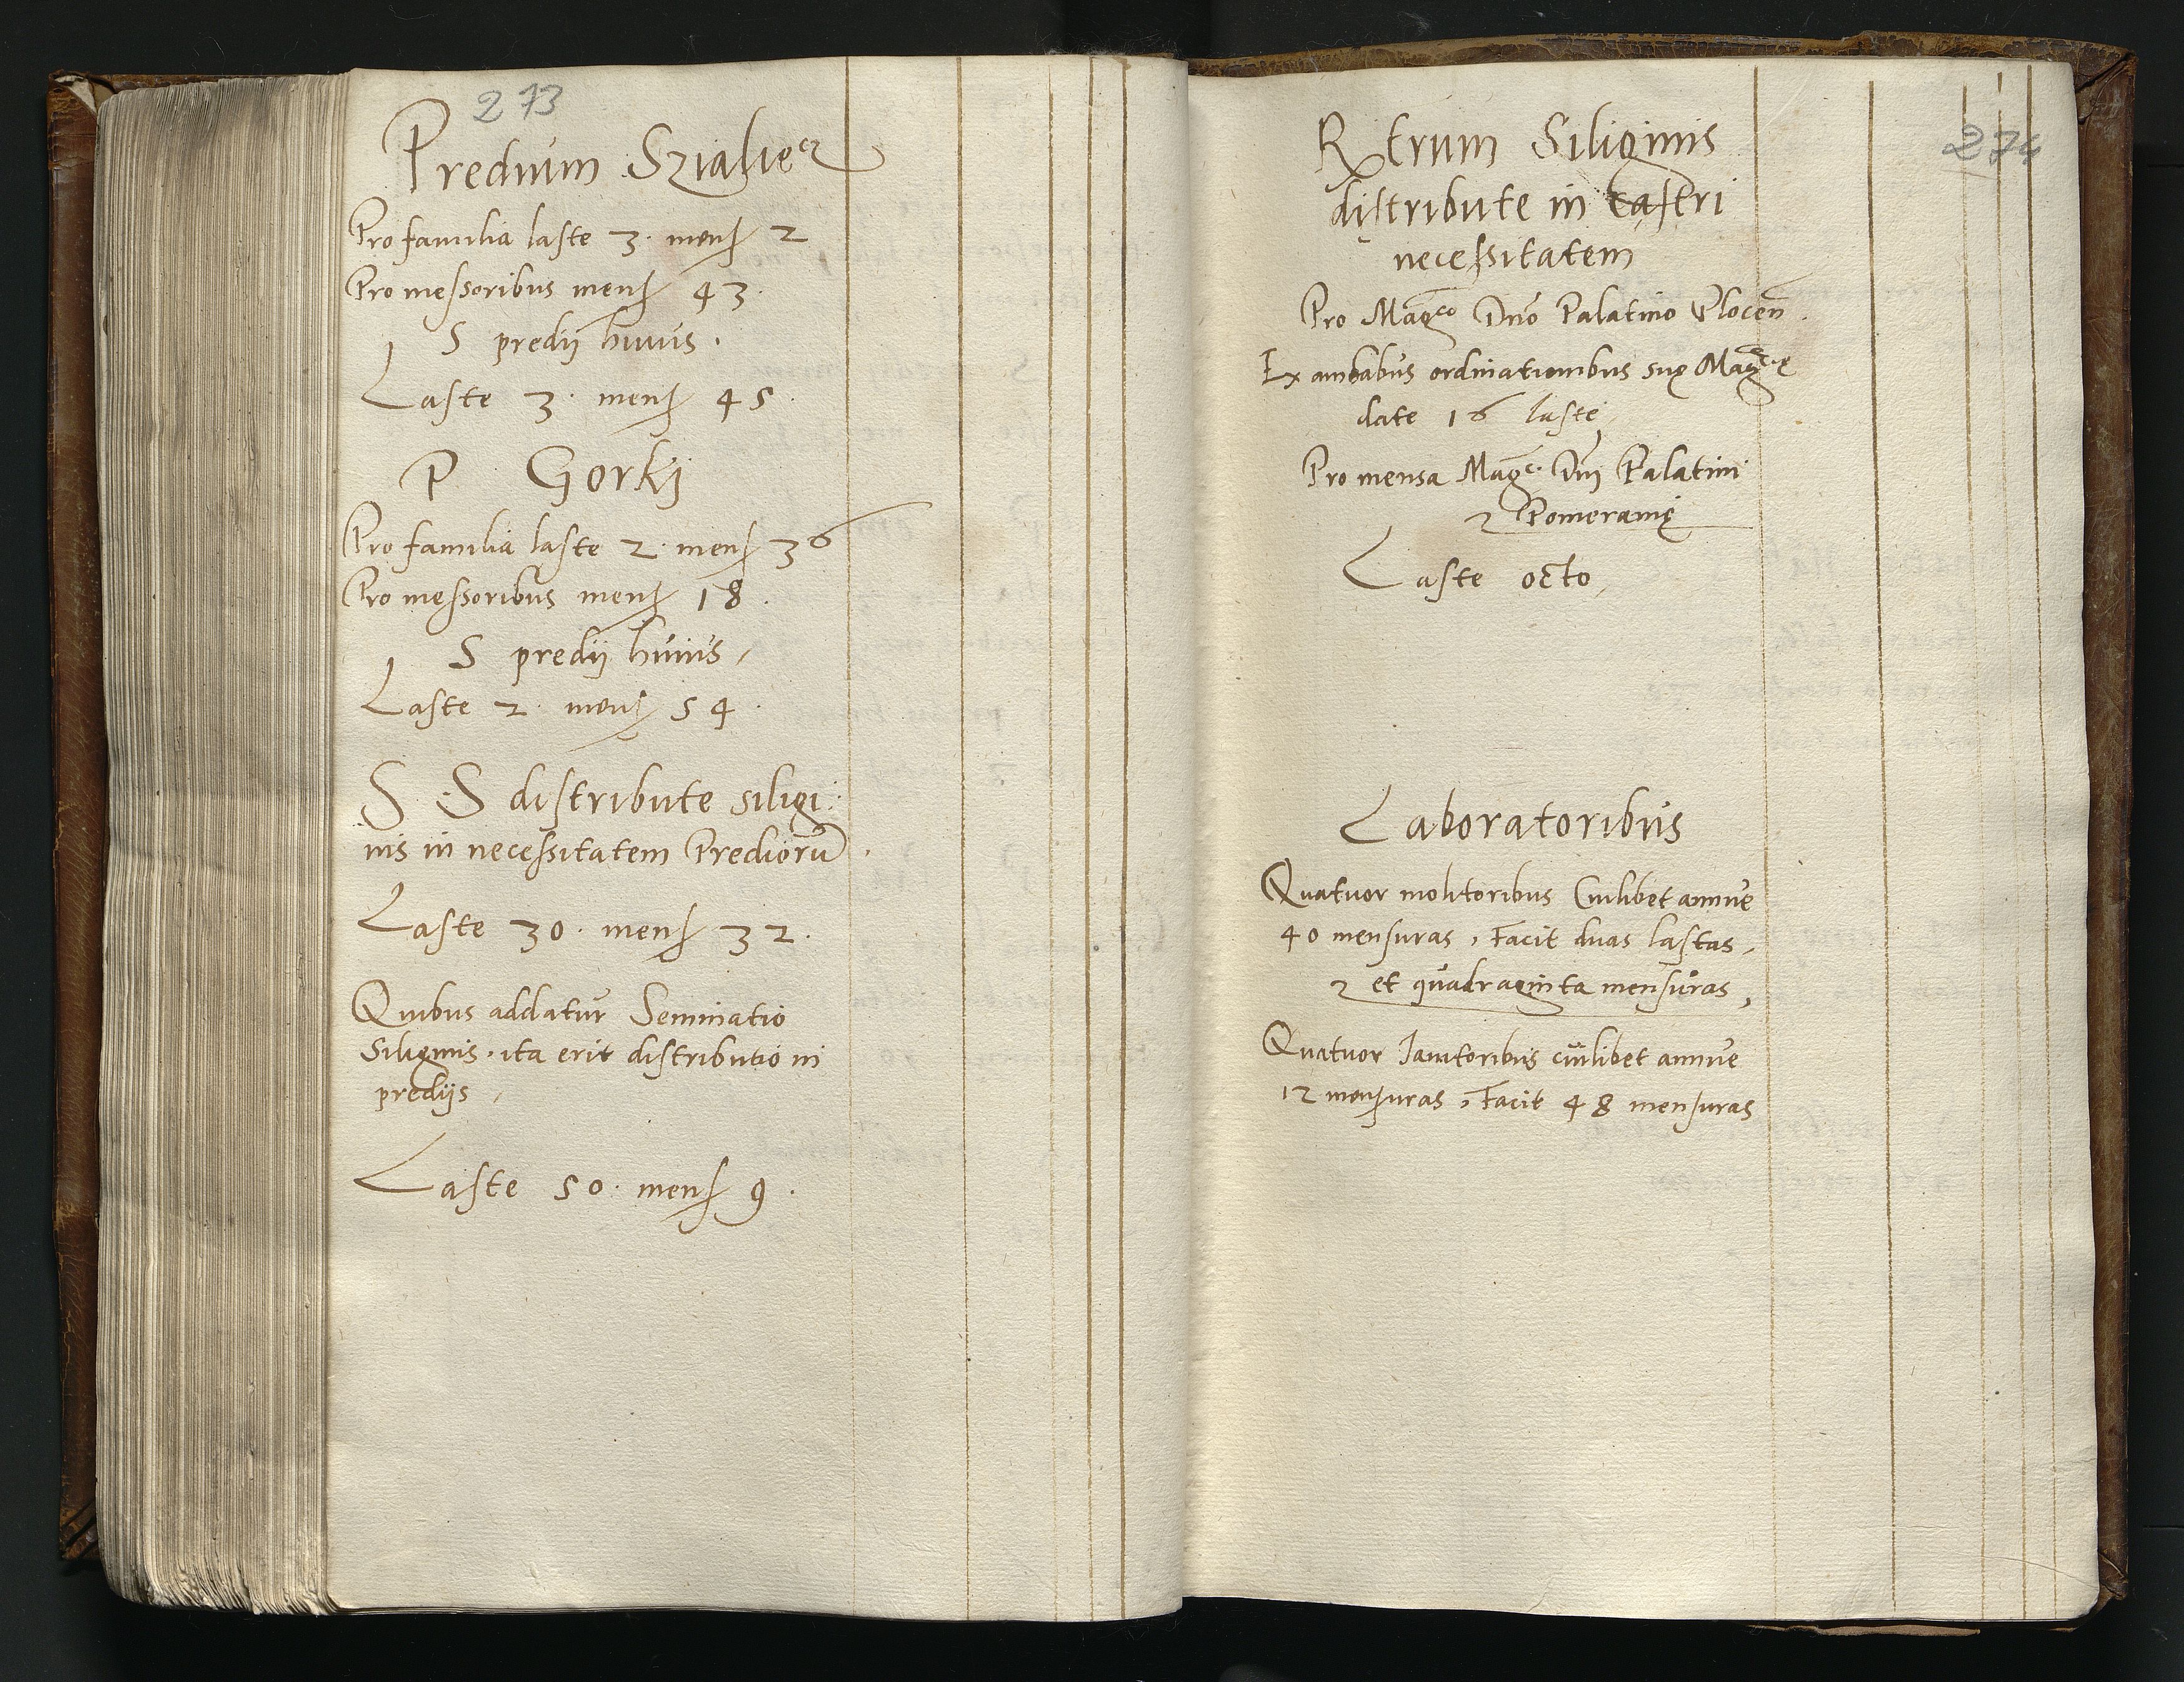 273
Predium Szialiecz
Pro familia laste 3. mens 2
Pro messoribus mens 43.
S predij huius.
Laste 3. mens 45.
P Gorkij
Pro familia laste 2. mens 36
Pro messoribus mens 18.
S predij huius,
Laste 2. mens 54.
S S distribute siligi:
nis in necessitatem Prediorū,
Laste 30. mens 32.
Quibus addatur Seminatio
Siliginis. ita erit distributio in
predijs,
Laste 50. mens 9.
274
Rtrum Siliginis
distribute in castri
necessitatem
Pro Magco Dno Palatino Plocen.
Ex ambabus ordinationibus suę Magcę
date 16 laste,
Pro mensa Magc. Dni Palatini
Pomeranię
Laste octo,
Laboratoribus
Quatuor molitoribus Cuilibet annue
40 mensuras, Facit duas lastas,
et quadraginta mensuras,
Quatuor Ianitoribus cuilibet annue
12 mensuras, Facit 48 mensuras